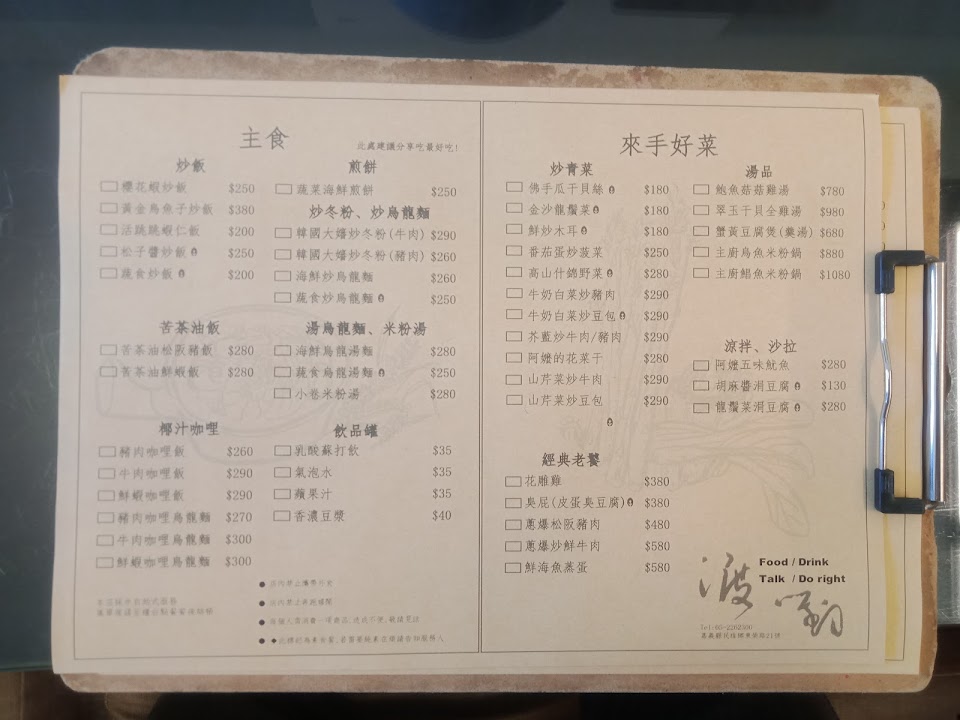 主食
此處建議分享吃最好吃!
炒飯
櫻花蝦炒飯 $250
黃金烏魚子炒飯 $380
活跳跳蝦仁飯 $200
松子醬炒飯 $250
蔬食炒飯 $200
苦茶油飯
苦茶油松阪豬飯 $280
苦茶油鮮蝦飯 $280
椰汁咖哩
豬肉咖哩飯 $260
牛肉咖哩飯 $290
鮮蝦咖哩飯 $290
豬肉咖哩烏龍麵 $270
牛肉咖哩烏龍麵 $300
鮮蝦咖哩烏龍麵 $300
煎餅
蔬菜海鮮煎餅 $250
炒冬粉、炒烏龍麵
韓國大嬸炒冬粉(牛肉) $290
韓國大嬸炒冬粉(豬肉) $260
海鮮炒烏龍麵 $260
蔬食炒烏龍麵 $250
湯烏龍麵、米粉湯
海鮮烏龍湯麵 $280
蔬食烏龍湯麵 $250
小卷米粉湯 $280
飲品罐
乳酸蘇打飲 $35
氣泡水 $35
蘋果汁 $35
香濃豆漿 $40
店內禁止攜帶外食
店內禁止奔跑嬉鬧
來手好菜
炒青菜
佛手瓜干貝絲 $180
金沙龍鬚菜 $180
鮮炒木耳 $180
番茄蛋炒菠菜 $250
高山什錦野菜 $280
牛奶白菜炒豬肉 $290
牛奶白菜炒豆包 $290
芥藍炒牛肉/豬肉 $290
阿嬤的花菜干 $280
山芹菜炒牛肉 $290
山芹菜炒豆包 $290
經典老饕
花雕雞 $380
臭屁(皮蛋臭豆腐) $380
蔥爆松阪豬肉 $480
蔥爆炒鮮牛肉 $580
鮮海魚蒸蛋 $580
湯品
鮑魚菇菇雞湯 $780
翠玉干貝全雞湯 $980
蟹黃豆腐煲(羹湯) $680
主廚烏魚米粉鍋 $880
主廚鯧魚米粉鍋 $1080
涼拌、沙拉
阿嬤五味魷魚 $280
胡麻醬涓豆腐 $130
龍鬚菜涓豆腐 $280
Food / Drink
Talk / Do right
Tel:05-2262300